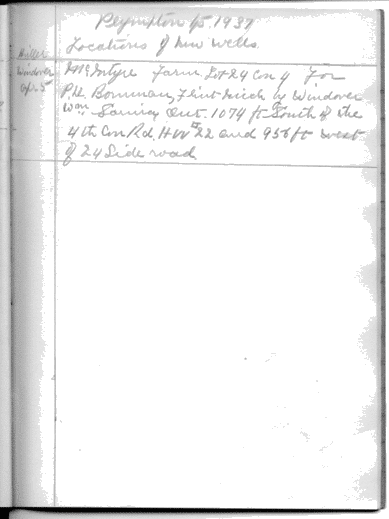 Plympton Tp 1937
Locations of New Wells.
Miller
Windover
Apr 5
McIntyre Farm Lot 24 Con 4 For
P.H. Bowman, Flint Mich by Windover
Sarnia Ont. 1074 ft South of the
4th Con Rd HW #22 and 956 ft west
of 24 Side road